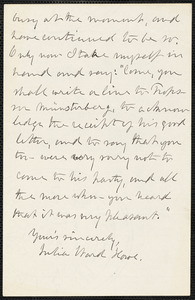 busy at the moment, and
have continued to be so.
Only now I take myself in
hand and say: "Come, you
shall write a line to Profes-
sor Münsterberg, to acknow-
ledge the receipt of his good
letter, and to say that you
were very sorry not to
come to his party, and all
the more when you heard
that it was very pleasant."
Yours sincerely,
Julia Ward Howe.